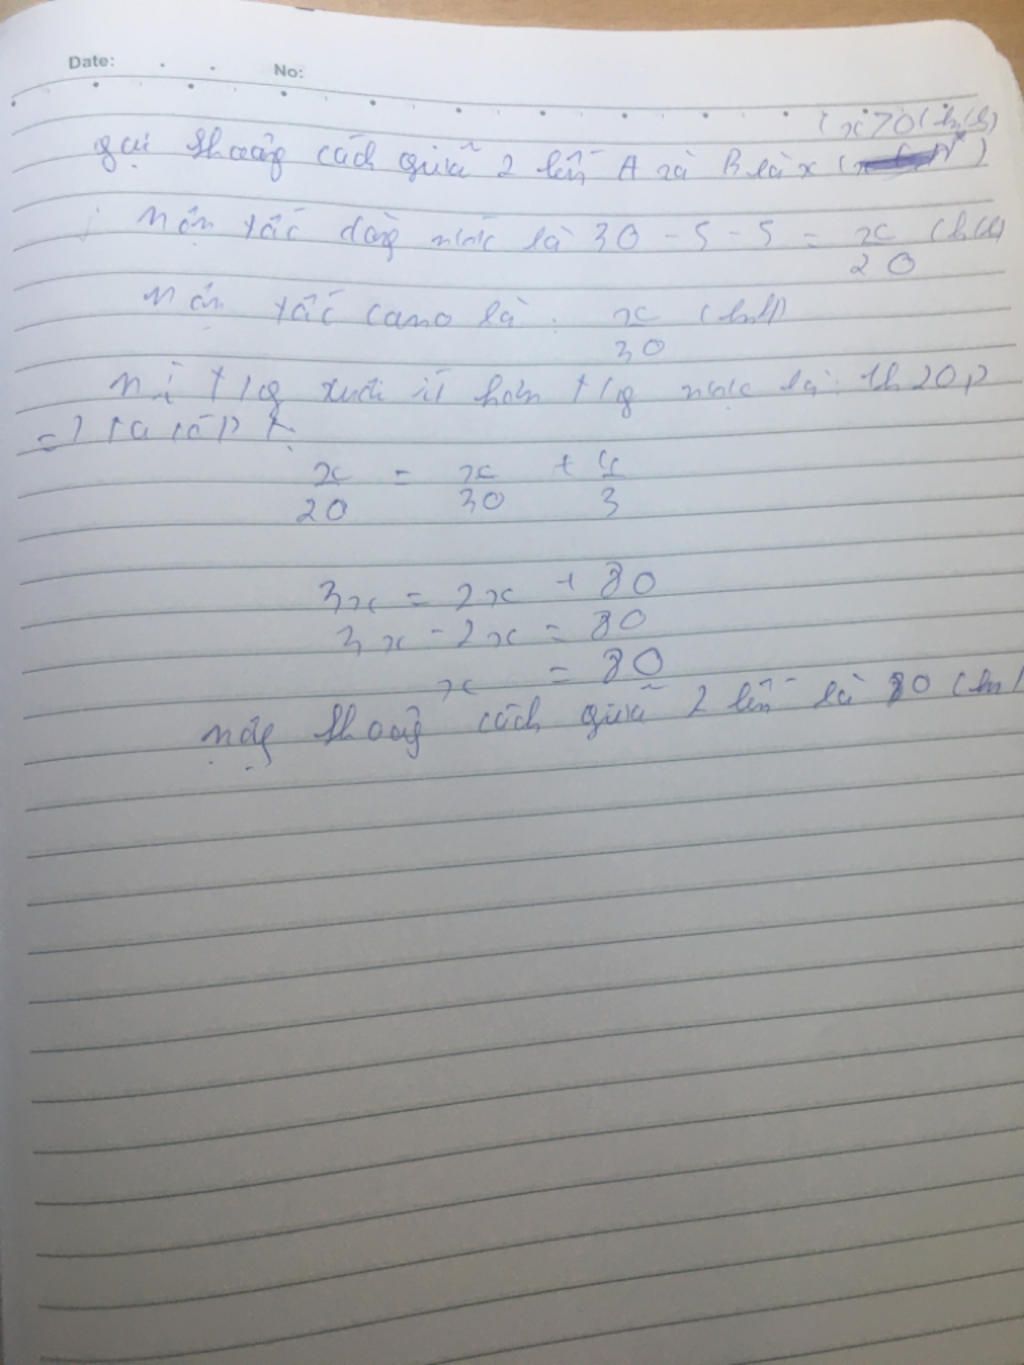 Date: No:
(x > 0 (km/h)
gọi khoảng cách giữa 2 bến A và B là x ( )
Vận tốc dòng nước là 30 - 5 - 5 = x/20 (km/h)
Vận tốc cano là : x/30 (km/h)
Vì t/g xuôi ít hơn t/g ngược là : 1h20p
=> ta có PT:
x/20 = x/30 + 4/3
3x = 2x + 80
3x - 2x = 80
x = 80
Vậy khoảng cách giữa 2 bến là 80 (km)